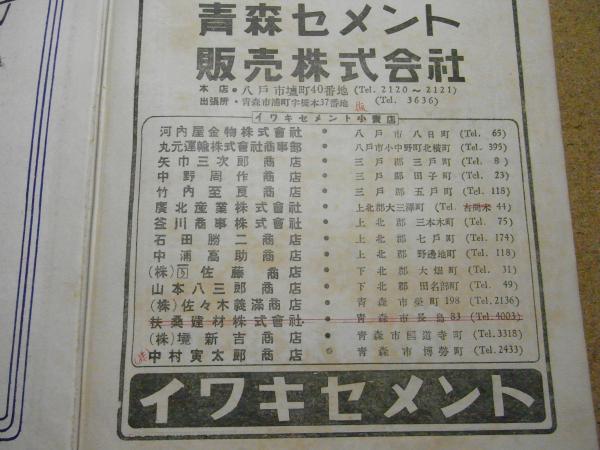 青森セメント
販売株式会社
本店・八戸市堤町40番地 (Tel. 2120~2121)
出張所・青森市浦町字橋本37番地 (Tel. 3636)
イワキセメント小賣店
河内屋金物株式會社 • 八戸市八日町 (Tel. 65)
丸元運輸株式會社商事部 • 八戸市小中野町北横町 (Tel. 395)
矢巾三次郎商店 • 三戸郡三戸町 (Tel. 8)
中野周作商店 • 三戸郡田子町 (Tel. 23)
竹内至良商店 • 三戸郡五戸町 (Tel. 118)
廣北産業株式會社 • 上北郡大三澤町 (Tel. 古間木 44)
釜川商事株式會社 • 上北郡三本木町 (Tel. 75)
石田勝二商店 • 上北郡七戸町 (Tel. 174)
中浦高助商店 • 上北郡野邊地町 (Tel. 118)
(株) 佐藤商店 • 下北郡大畑町 (Tel. 31)
山本八三郎商店 • 下北郡田名部町 (Tel. 49)
(株)佐々木義滿商店 • 青森市栄町198 (Tel. 2136)
扶桑建材株式會社 • 青森市長島83 (Tel. 4003)
(株)境新吉商店 • 青森市國道寺町 (Tel. 3318)
中村寅太郎商店 • 青森市博勞町 (Tel. 2433)
イワキセメント